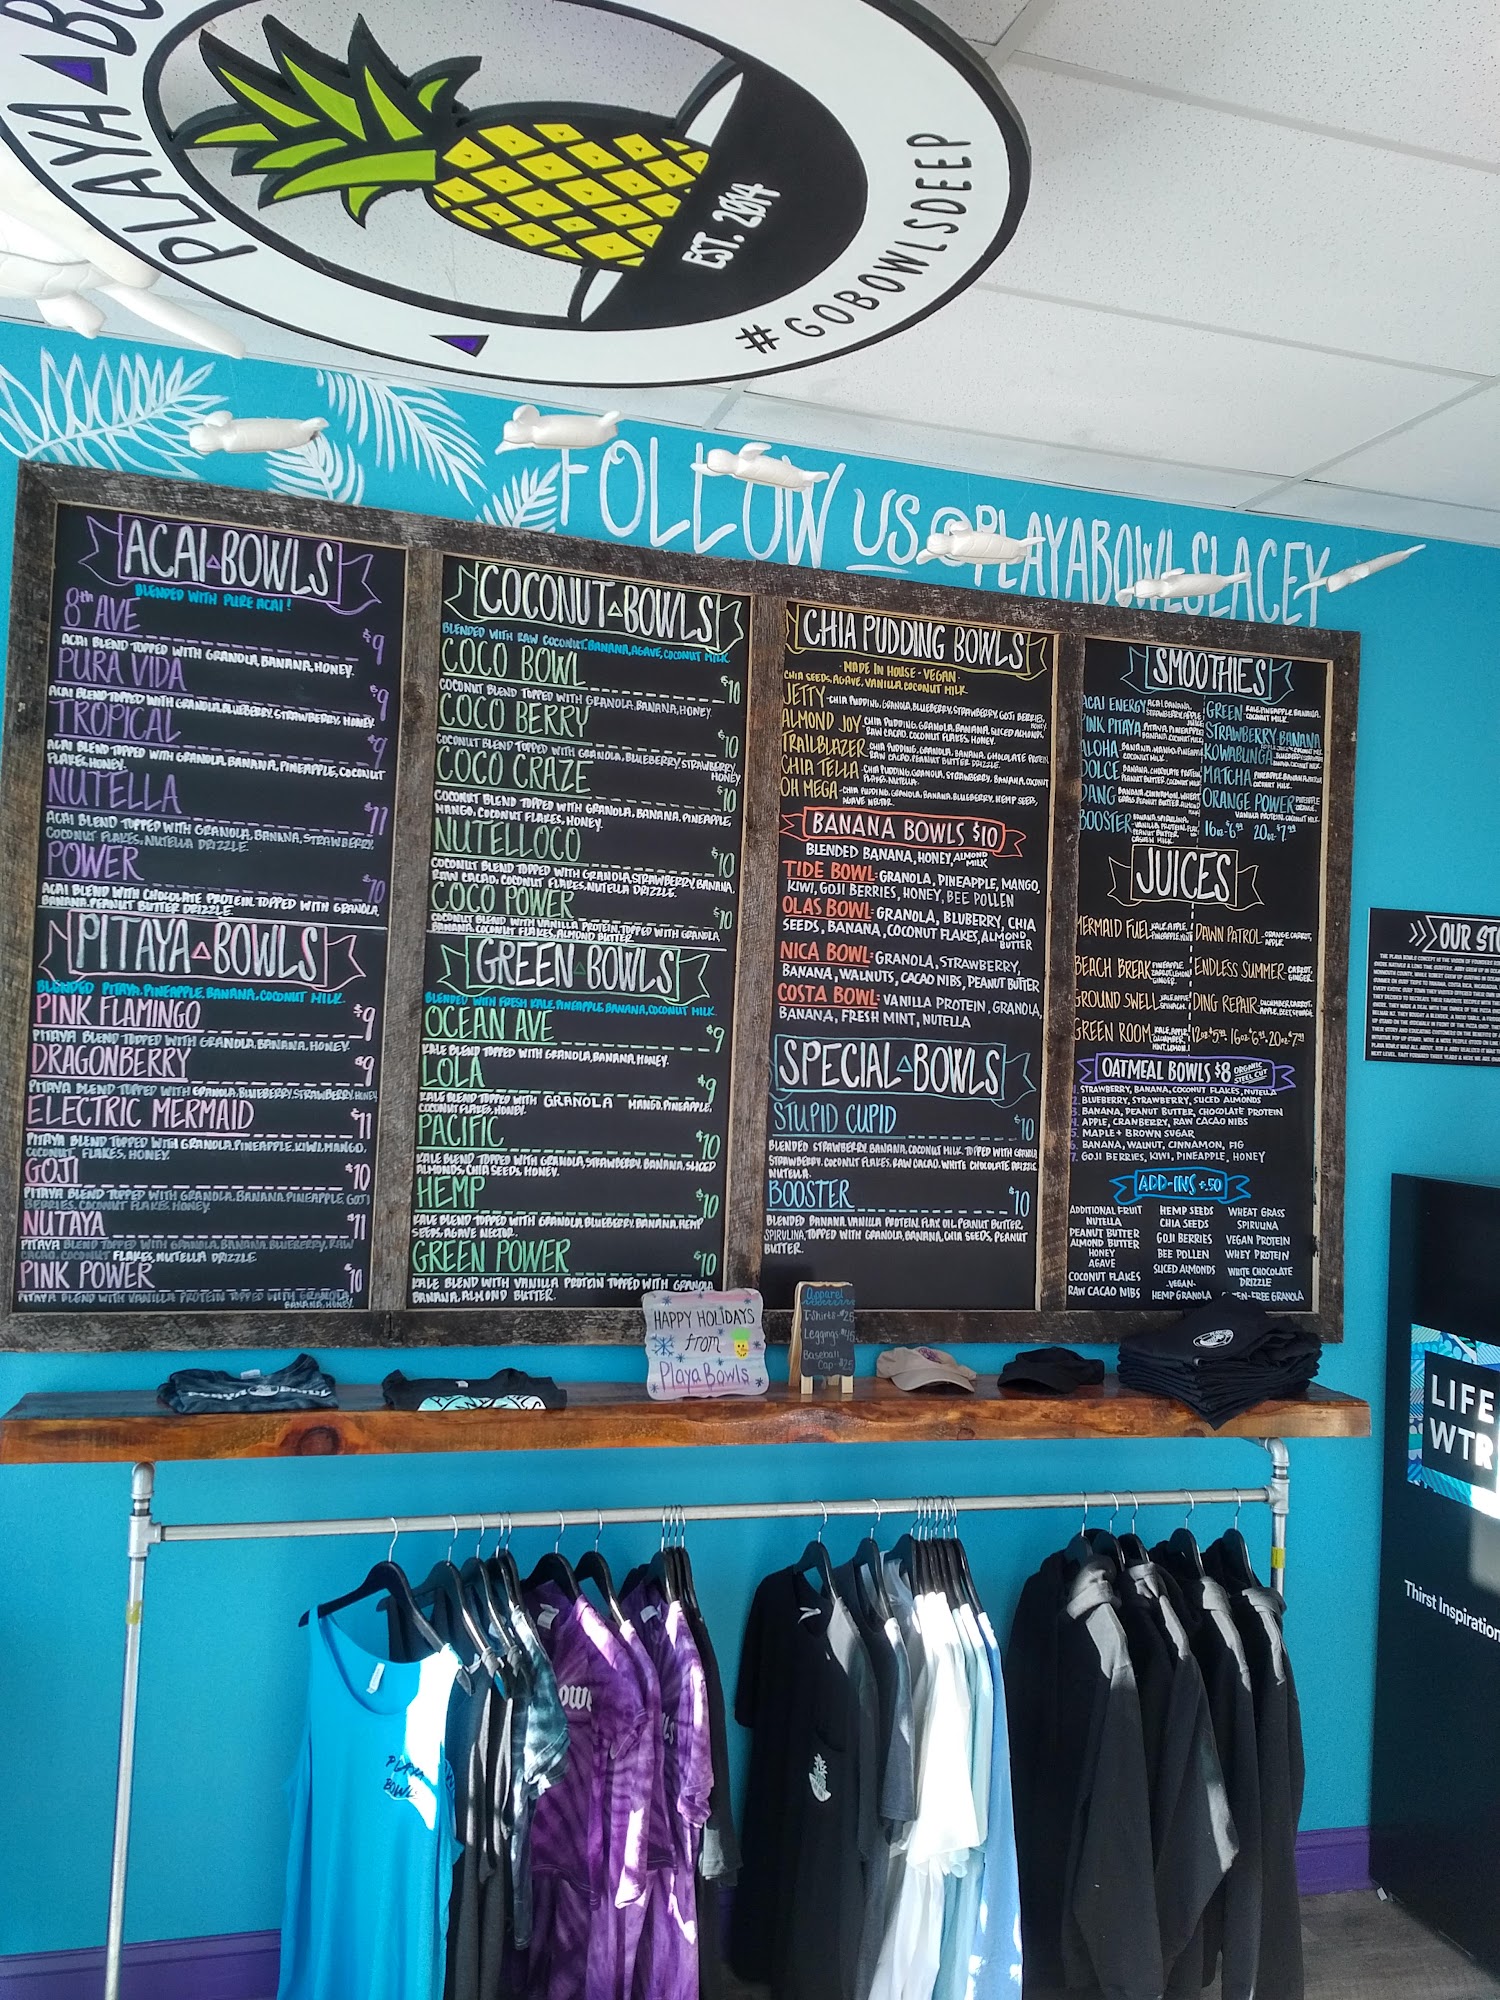 PLAYA BO
EST. 2014
#GOBOWLSDEEP
FOLLOW US @PLAYABOWLSLACEY
ACAI BOWLS
BLENDED WITH PURE ACAI!
8th AVE $9
ACAI BLEND TOPPED WITH GRANOLA, BANANA, HONEY.
PURA VIDA $9
ACAI BLEND TOPPED WITH GRANOLA, BLUEBERRY, STRAWBERRY, HONEY.
TROPICAL $9
ACAI BLEND TOPPED WITH GRANOLA, BANANA, PINEAPPLE, COCONUT
FLAKES, HONEY.
NUTELLA $11
ACAI BLEND TOPPED WITH GRANOLA, BANANA, STRAWBERRY,
COCONUT FLAKES, NUTELLA DRIZZLE.
POWER $10
ACAI BLEND WITH CHOCOLATE PROTEIN TOPPED WITH GRANOLA,
BANANA, PEANUT BUTTER DRIZZLE.
PITAYA BOWLS
BLENDED PITAYA, PINEAPPLE, BANANA, COCONUT MILK.
PINK FLAMINGO $9
PITAYA BLEND TOPPED WITH GRANOLA, BANANA, HONEY.
DRAGONBERRY $9
PITAYA BLEND TOPPED WITH GRANOLA, BLUEBERRY, STRAWBERRY, HONEY
ELECTRIC MERMAID $11
PITAYA BLEND TOPPED WITH GRANOLA, PINEAPPLE, KIWI, MANGO,
COCONUT FLAKES, HONEY.
GOJI $10
PITAYA BLEND TOPPED WITH GRANOLA, BANANA, PINEAPPLE, GOJI
BERRIES, COCONUT FLAKES, HONEY.
NUTAYA $11
PITAYA BLEND TOPPED WITH GRANOLA, BANANA, BLUEBERRY, RAW
CACAO, COCONUT FLAKES, NUTELLA DRIZZLE.
PINK POWER $10
PITAYA BLEND WITH VANILLA PROTEIN TOPPED WITH GRANOLA,
BANANA, HONEY.
COCONUT BOWLS
BLENDED WITH RAW COCONUT, BANANA, AGAVE, COCONUT MILK
COCO BOWL $10
COCONUT BLEND TOPPED WITH GRANOLA, BANANA, HONEY.
COCO BERRY $10
COCONUT BLEND TOPPED WITH GRANOLA, BLUEBERRY, STRAWBERRY,
HONEY
COCO CRAZE $10
COCONUT BLEND TOPPED WITH GRANOLA, BANANA, PINEAPPLE,
MANGO, COCONUT FLAKES, HONEY.
NUTELLOCO $10
COCONUT BLEND TOPPED WITH GRANOLA, STRAWBERRY, BANANA,
RAW CACAO, COCONUT FLAKES, NUTELLA DRIZZLE.
COCO POWER $10
COCONUT BLEND WITH VANILLA PROTEIN, TOPPED WITH GRANOLA,
BANANA, COCONUT FLAKES, ALMOND BUTTER.
GREEN BOWLS
BLENDED WITH FRESH KALE, PINEAPPLE, BANANA, COCONUT MILK.
OCEAN AVE $9
KALE BLEND TOPPED WITH GRANOLA, BANANA, HONEY.
LOLA $9
KALE BLEND TOPPED WITH GRANOLA MANGO, PINEAPPLE,
COCONUT FLAKES, HONEY.
PACIFIC $10
KALE BLEND TOPPED WITH GRANOLA, STRAWBERRY, BANANA, SLICED
ALMONDS, CHIA SEEDS, HONEY.
HEMP $10
KALE BLEND TOPPED WITH GRANOLA, BLUEBERRY, BANANA, HEMP
SEEDS, AGAVE NECTAR.
GREEN POWER $10
KALE BLEND WITH VANILLA PROTEIN TOPPED WITH GRANOLA
BANANA, ALMOND BUTTER.
CHIA PUDDING BOWLS
- MADE IN HOUSE - VEGAN -
CHIA SEEDS, AGAVE, VANILLA, COCONUT MILK.
JETTY -CHIA PUDDING, GRANOLA, BLUEBERRY, STRAWBERRY, GOJI BERRIES,
HONEY
ALMOND JOY -CHIA PUDDING, GRANOLA, BANANA, SLICED ALMONDS,
RAW CACAO, COCONUT FLAKES, HONEY.
TRAILBLAZER -CHIA PUDDING, GRANOLA, BANANA, CHOCOLATE PROTEIN,
RAW CACAO, PEANUT BUTTER DRIZZLE.
CHIA TELLA -CHIA PUDDING, GRANOLA, STRAWBERRY, BANANA, COCONUT
FLAKES, NUTELLA.
OH MEGA -CHIA PUDDING, GRANOLA, BANANA, BLUEBERRY, HEMP SEEDS,
AGAVE NECTAR.
BANANA BOWLS $10
BLENDED BANANA, HONEY, ALMOND MILK
TIDE BOWL: GRANOLA, PINEAPPLE, MANGO,
KIWI, GOJI BERRIES, HONEY, BEE POLLEN
OLAS BOWL: GRANOLA, BLUBERRY, CHIA
SEEDS, BANANA, COCONUT FLAKES, ALMOND BUTTER
NICA BOWL: GRANOLA, STRAWBERRY,
BANANA, WALNUTS, CACAO NIBS, PEANUT BUTTER
COSTA BOWL: VANILLA PROTEIN, GRANOLA,
BANANA, FRESH MINT, NUTELLA
SPECIAL BOWLS
STUPID CUPID $10
BLENDED STRAWBERRY, BANANA, COCONUT MILK, TOPPED WITH GRANOLA
STRAWBERRY, COCONUT FLAKES, RAW CACAO, WHITE CHOCOLATE DRIZZLE,
NUTELLA.
BOOSTER $10
BLENDED BANANA, VANILLA PROTEIN, FLAX OIL, PEANUT BUTTER,
SPIRULINA, TOPPED WITH GRANOLA, BANANA, CHIA SEEDS, PEANUT
BUTTER.
SMOOTHIES
ACAI ENERGY ACAI, BANANA, STRAWBERRY, APPLE JUICE
PINK PITAYA PITAYA, PINEAPPLE BANANA, COCONUT MILK
ALOHA BANANA, MANGO, PINEAPPLE COCONUT MILK.
DOLCE BANANA, CHOCOLATE PROTEIN PEANUT BUTTER, COCONUT MILK
DANG BANANA, CINNAMON, WHEAT GRASS, PEANUT BUTTER, ALMOND
BOOSTER BANANA, SPIRULINA, VANILLA PROTEIN, FLAX PEANUT BUTTER,
GREEN KALE, PINEAPPLE, BANANA, COCONUT MILK.
STRAWBERRY BANANA
KOWABUNGA
MATCHA PINEAPPLE, BANANA, MATCHA COCONUT MILK.
ORANGE POWER PINEAPPLE ORANGE, VANILLA PROTEIN, COCONUT MILK.
16oz-$6.99 20oz-$7.99
JUICES
MERMAID FUEL KALE, APPLE, PINEAPPLE, MINT
BEACH BREAK PINEAPPLE LEMON GINGER
GROUND SWELL KALE, APPLE SPINACH
GREEN ROOM KALE, APPLE CUCUMBER MINT, LEMON
DAWN PATROL- ORANGE, CARROT, APPLE.
ENDLESS SUMMER- CARROT, GINGER,
DING REPAIR- CUCUMBER, CARROT, APPLE, BEET,
12oz-$5.99 16oz-$6.99 20oz-$7.99
OATMEAL BOWLS $8 ORGANIC STEEL CUT
1. STRAWBERRY, BANANA, COCONUT FLAKES, NUTELLA
2. BLUEBERRY, STRAWBERRY, SLICED ALMONDS
3. BANANA, PEANUT BUTTER, CHOCOLATE PROTEIN
4. APPLE, CRANBERRY, RAW CACAO NIBS
5. MAPLE + BROWN SUGAR
6. BANANA, WALNUT, CINNAMON, FIG
7. GOJI BERRIES, KIWI, PINEAPPLE, HONEY
ADD-INS +.50
ADDITIONAL FRUIT
NUTELLA
PEANUT BUTTER
ALMOND BUTTER
HONEY
AGAVE
COCONUT FLAKES
RAW CACAO NIBS
HEMP SEEDS
CHIA SEEDS
GOJI BERRIES
BEE POLLEN
SLICED ALMONDS
-VEGAN-
HEMP GRANOLA
WHEAT GRASS
SPIRULINA
VEGAN PROTEIN
WHEY PROTEIN
WHITE CHOCOLATE
DRIZZLE
GLUTEN-FREE GRANOLA
OUR STO
HAPPY HOLIDAYS
from
Playa Bowls
Apparel
T-Shirts-$25
Leggings $45
Baseball
Cap-$25
PLAYA BOWL
LIFE
WTR
Thirst Inspiration
PLAYA
BOWLS